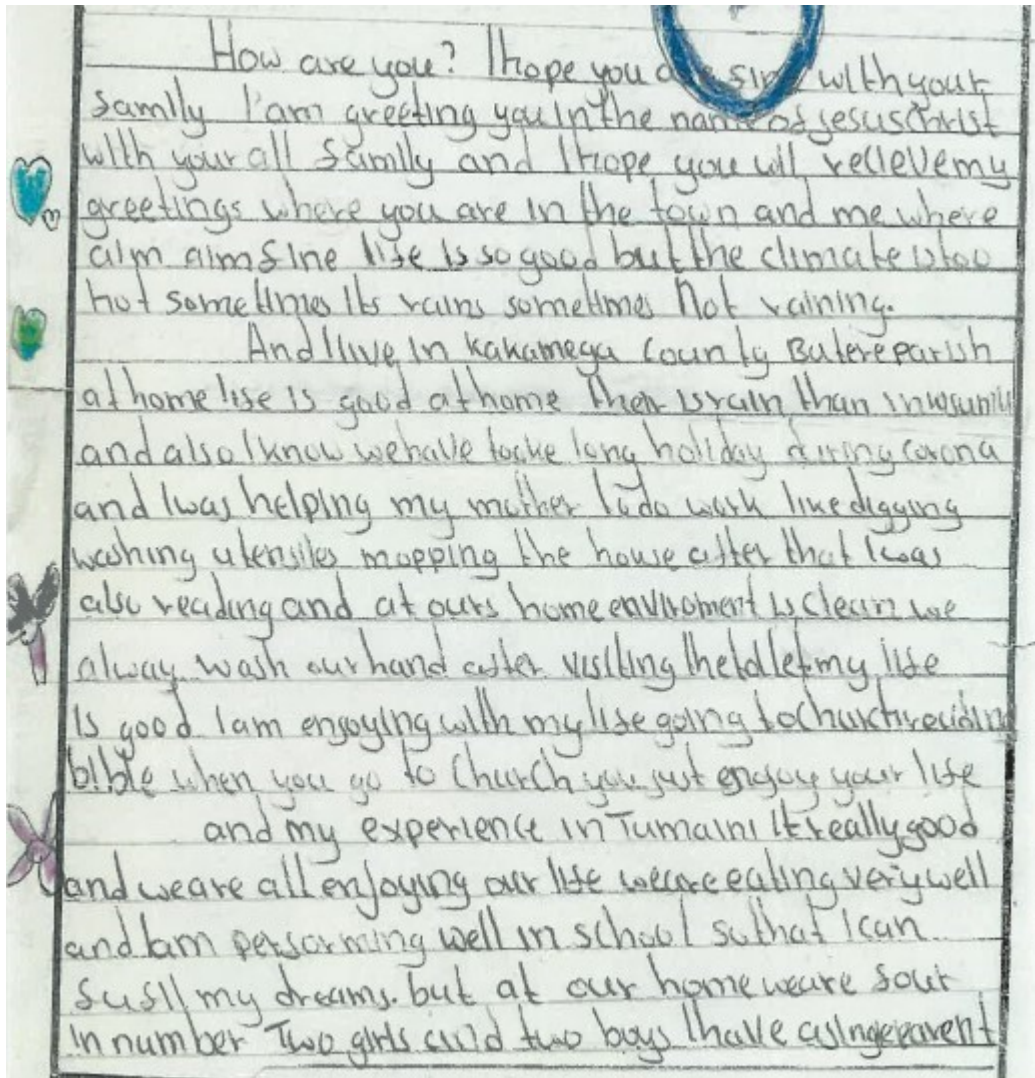 How are you? I hope you are fine with your
family I'am greeting you in the name of jesus christ
with your all family and I hope you will recieve my
greetings where you are in the town and me where
aim aim fine life is so good but the climate is too
hot sometimes its rains sometimes Not raining.
And I live in Kakamega County Butere parish
at home life is good at home their is rain than in
and also I know we have tooke long holiday during corona
and I was helping my mother to do work like digging
washing utensiles mopping the house after that I was
also reading and at ours home enviroment is clean we
alway wash our hand after visiting the toilet my life
is good I am enjoying with my life going to Church reading
bible when you go to Church you just enjoy your life
and my experience in Tumaini it really good
and we are all enjoying our life we are eating very well
and Iam performing well in school so that I can
fufil my dreams. but at our home we are four
in number Two girls and two boys I have a singe parent